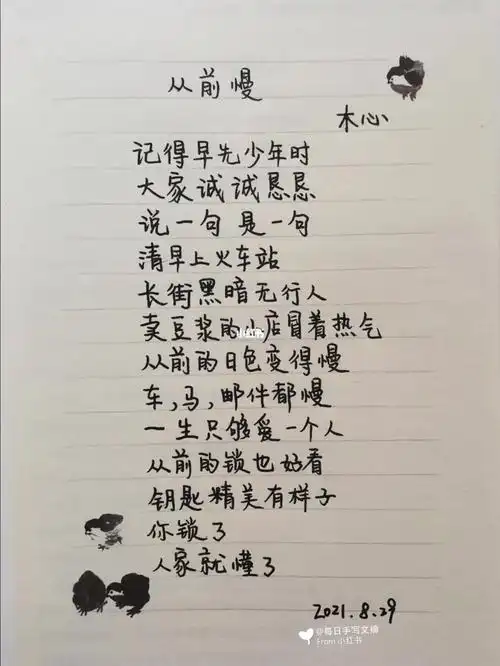 从前慢
木心
记得早先少年时
大家诚诚恳恳
说一句 是一句
清早上火车站
长街黑暗无行人
卖豆浆的小店冒着热气
从前的日色变得慢
车,马,邮件都慢
一生只够爱一个人
从前的锁也好看
钥匙精美有样子
你锁了
人家就懂了
2021.8.29
@每日手写文摘
From 小红书